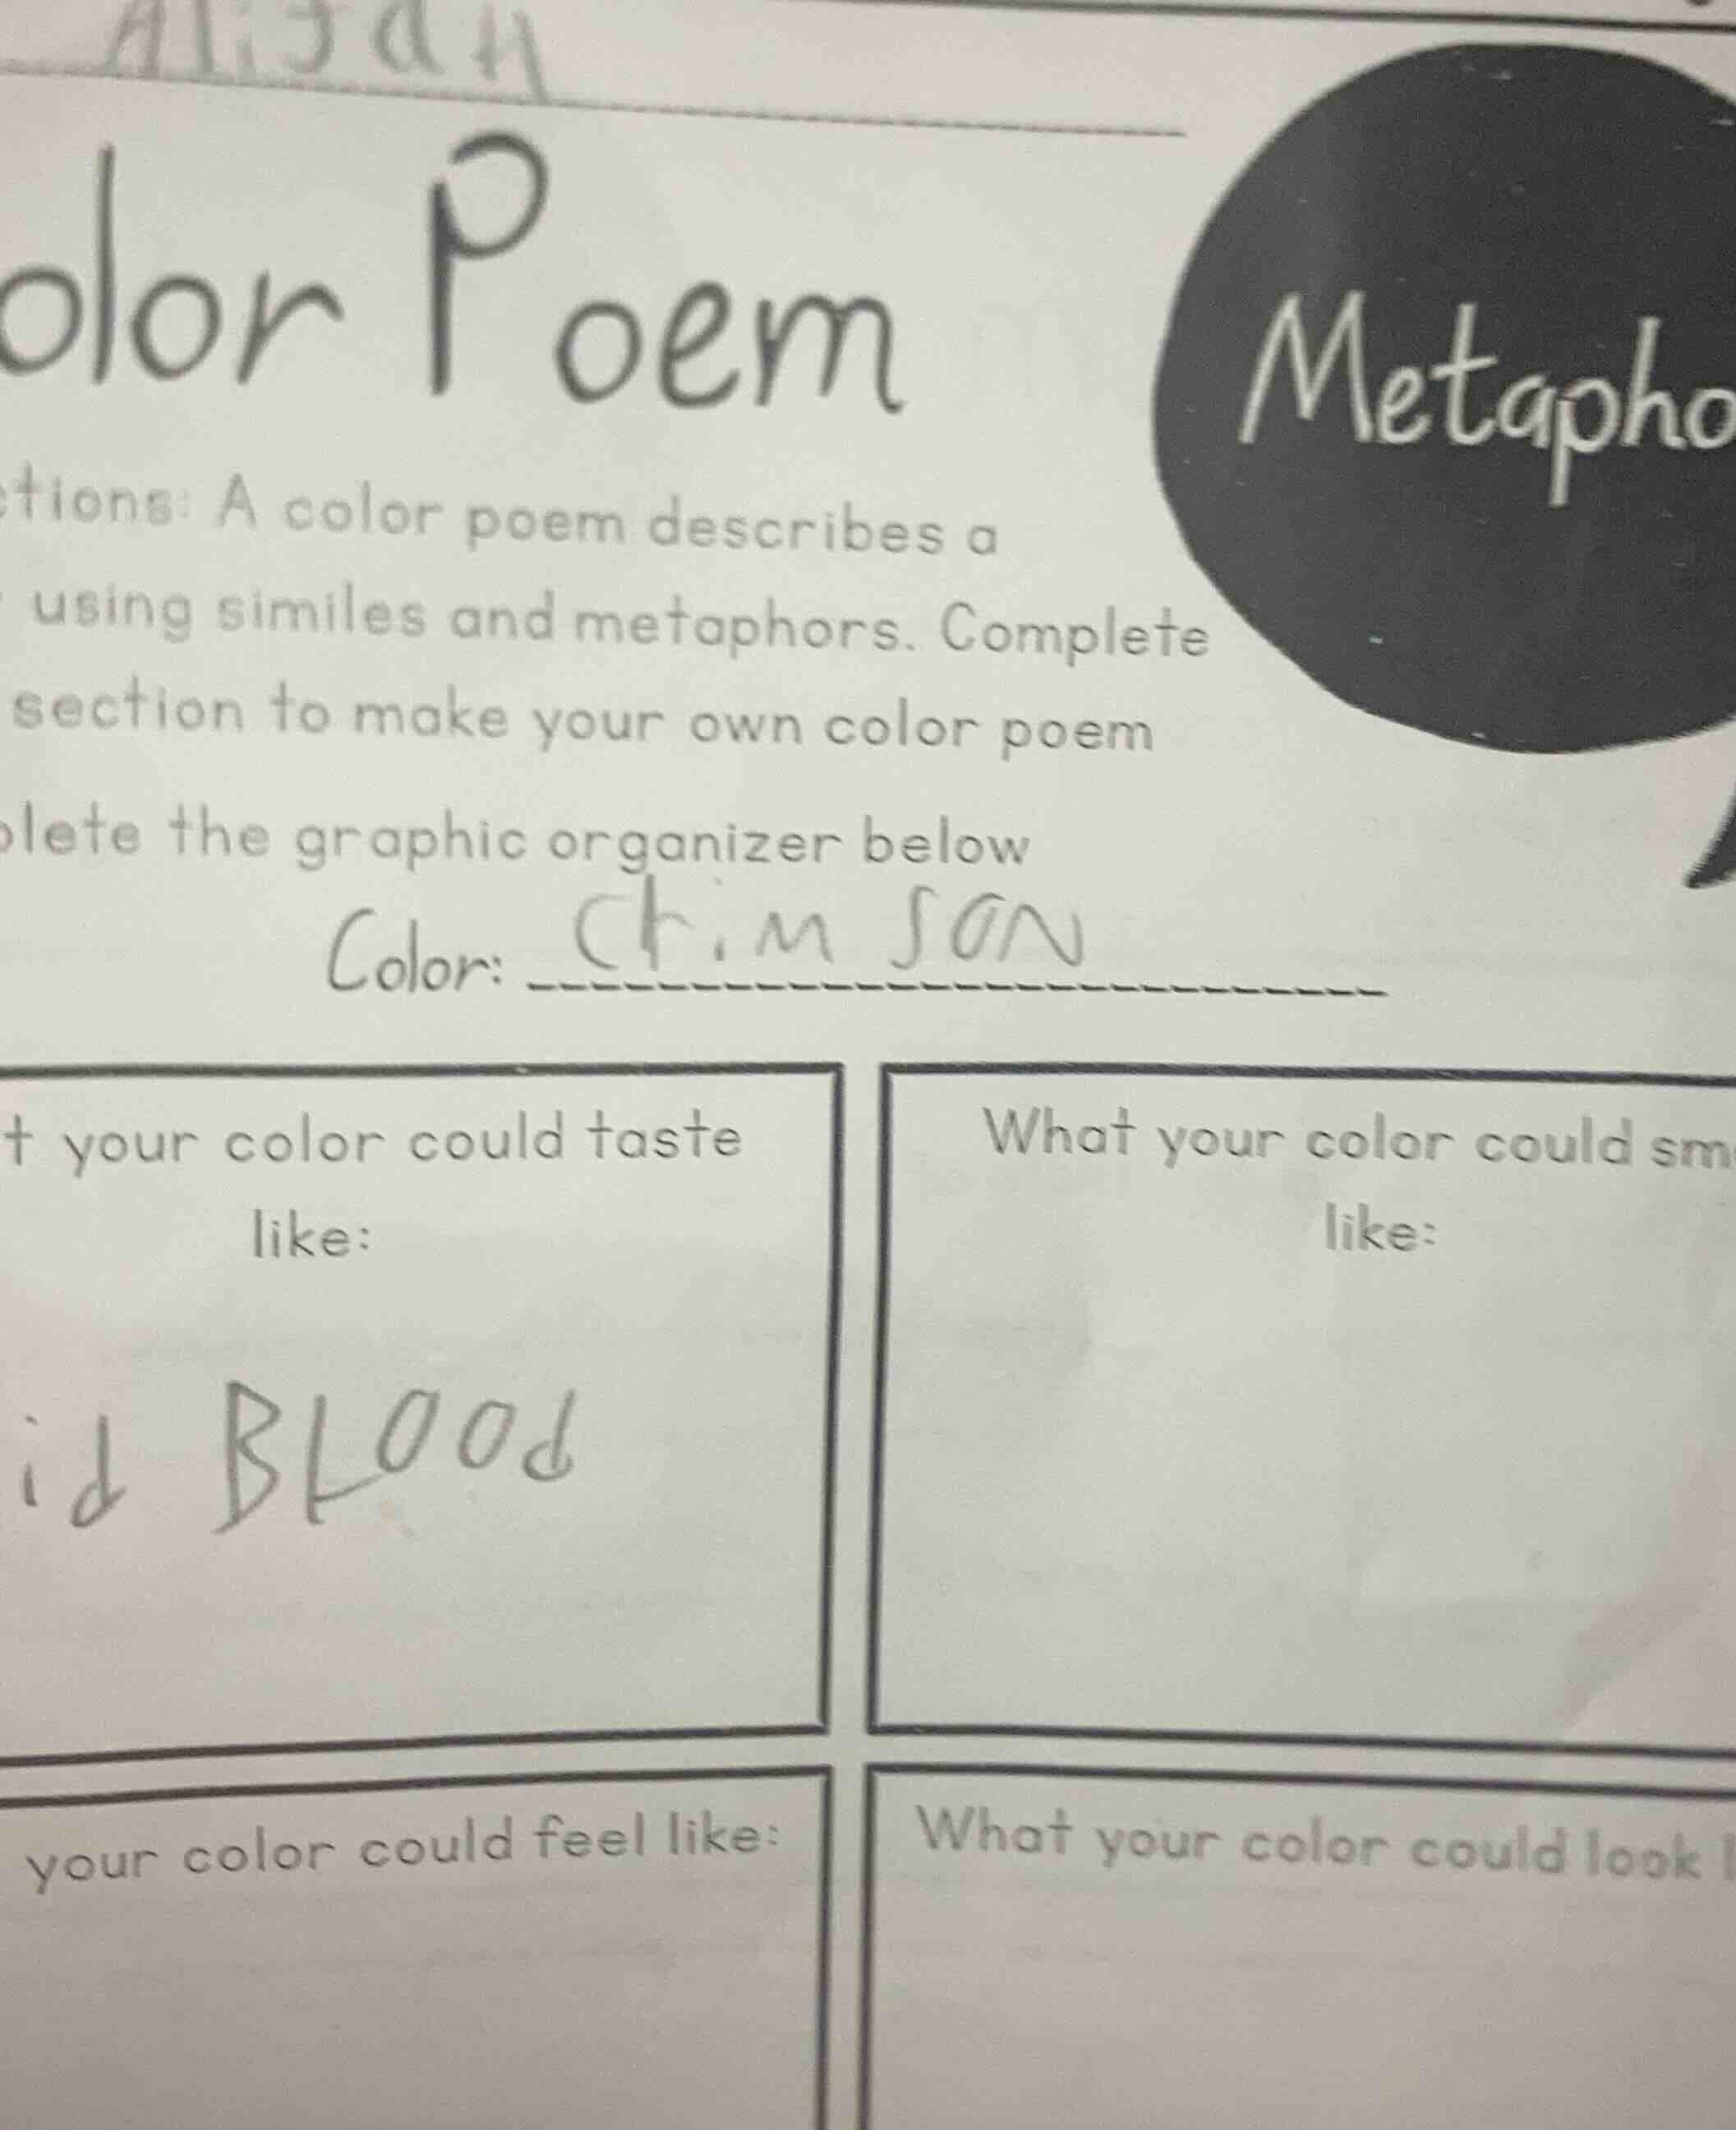 Alijah
olor Poem
Metapho
ctions: A color poem describes a
using similes and metaphors. Complete
section to make your own color poem
plete the graphic organizer below
Color: CrimSON
t your color could taste
like:
id BLOOd
What your color could sm
like:
your color could feel like:
What your color could look l